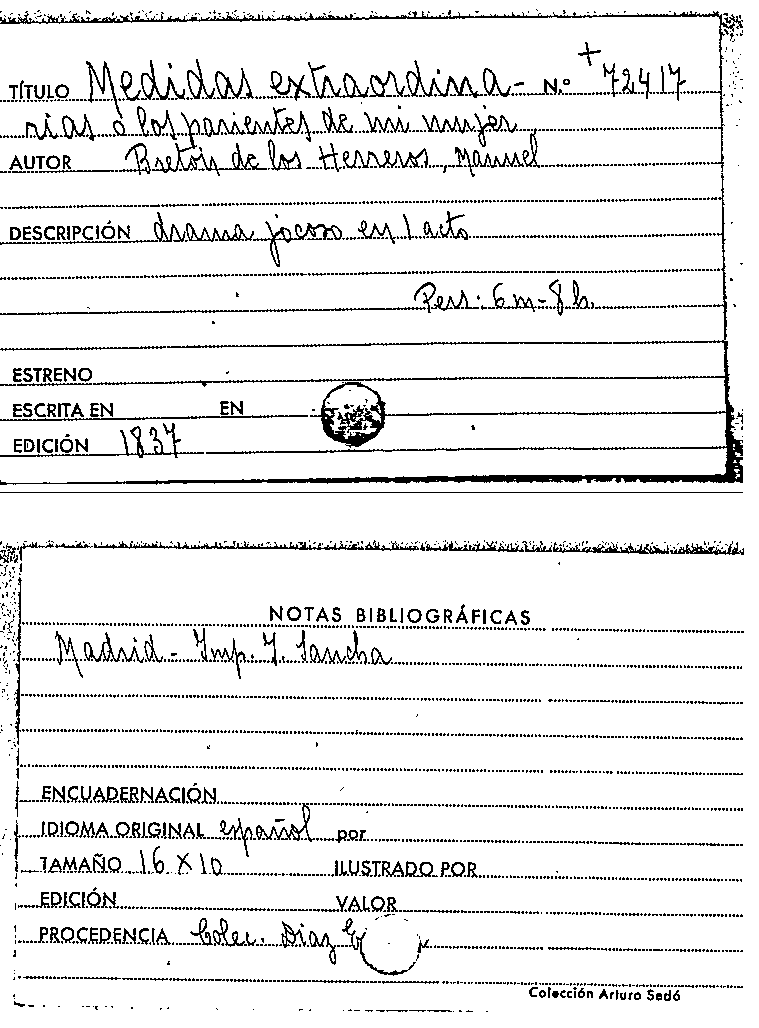 TÍTULO Medidas extraordina- N.º + 72417
rias o los parientes de mi mujer
AUTOR Bretón de los Herreros, Manuel
DESCRIPCIÓN drama jocoso en 1 acto
Pers: 6 m - 8 h.
ESTRENO
ESCRITA EN EN
EDICIÓN 1837
NOTAS BIBLIOGRÁFICAS
Madrid - Imp. I. Sancha
ENCUADERNACIÓN
IDIOMA ORIGINAL español por
TAMAÑO 16 X 10 ILUSTRADO POR
EDICIÓN VALOR
PROCEDENCIA Colec. Díaz
Colección Arturo Sedó